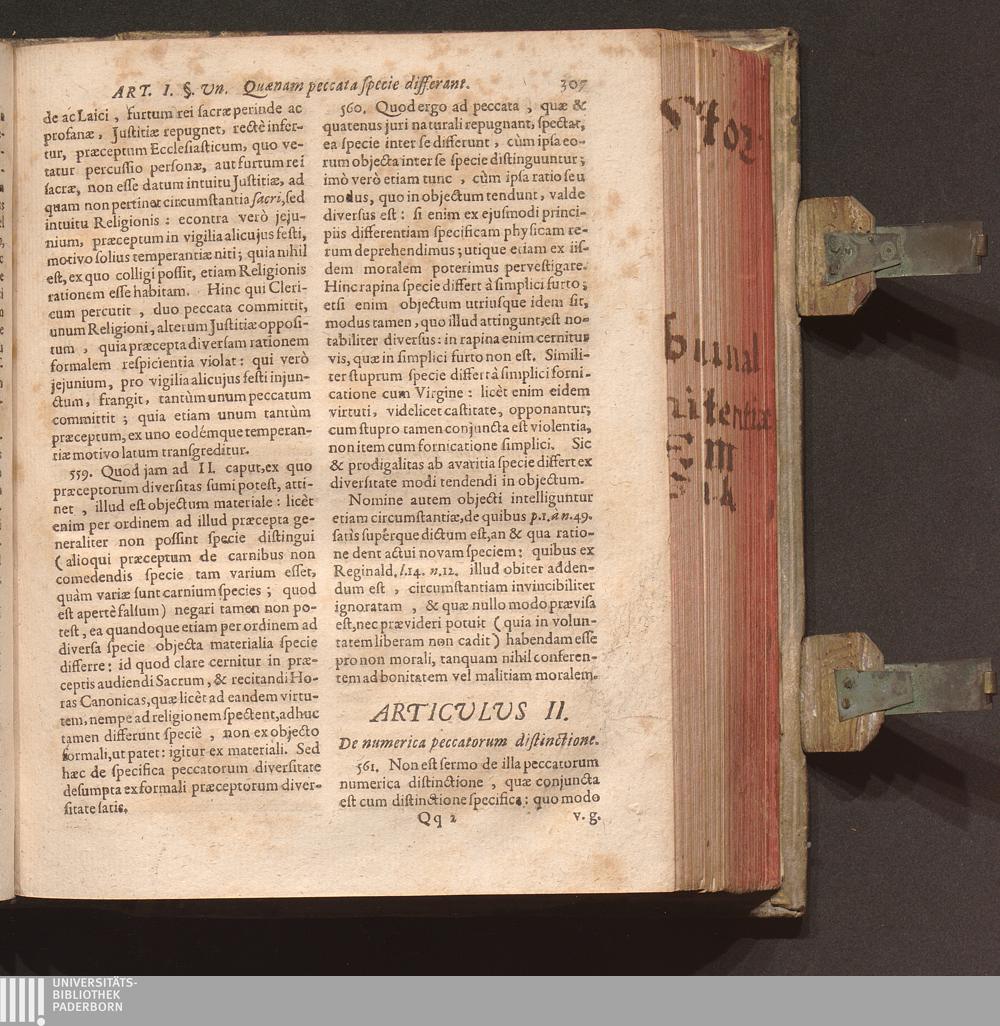 ART. I. §. Un. Quænam peccata ſpecie differant. 307
de ac Laici, furtum rei ſacræ perinde ac
profanæ, Juſtitiæ repugnet, rectè infer-
tur, præceptum Ecclesiaſticum, quo ve-
tatur percuſſio perſonæ, aut furtum rei
ſacræ, non eſſe datum intuitu Juſtitiæ, ad
quam non pertinet circumſtantia ſacri, ſed
intuitu Religionis: econtra verò jeju-
nium, præceptum in vigilia alicujus feſti,
motivo ſolius temperantiæ niti; quia nihil
eſt, ex quo colligi poſſit, etiam Religionis
rationem eſſe habitam. Hinc qui Cleri-
cum percutit, duo peccata committit,
unum Religioni, alterum Juſtitiæ oppoſi-
tum, quia præcepta diverſam rationem
formalem reſpicientia violat: qui verò
jejunium, pro vigilia alicujus feſti injun-
ctum, frangit, tantùm unum peccatum
committit; quia etiam unum tantùm
præceptum, ex uno eodémque temperan-
tiæ motivo latum tranſgreditur.
559. Quod jam ad II. caput, ex quo
præceptorum diverſitas ſumi poteſt, atti-
net, illud eſt objectum materiale: licèt
enim per ordinem ad illud præcepta ge-
neraliter non poſſint ſpecie diſtingui
(alioqui præceptum de carnibus non
comedendis ſpecie tam varium eſſet,
quàm variæ ſunt carnium ſpecies; quod
eſt apertè falſum) negari tamen non po-
teſt, ea quandoque etiam per ordinem ad
diverſa ſpecie objecta materialia ſpecie
differre: id quod clare cernitur in præ-
ceptis audiendi Sacrum, & recitandi Ho-
ras Canonicas, quæ licèt ad eandem virtu-
tem, nempe ad religionem ſpectent, adhuc
tamen differunt ſpeciè, non ex objecto
formali, ut patet: igitur ex materiali. Sed
hæc de ſpecifica peccatorum diverſitate
deſumpta ex formali præceptorum diver-
ſitate ſatis.
560. Quod ergo ad peccata, quæ &
quatenus juri naturali repugnant, ſpectat,
ea ſpecie inter ſe differunt, cùm ipſa eo-
rum objecta inter ſe ſpecie diſtinguuntur;
imò verò etiam tunc, cùm ipſa ratio ſeu
modus, quo in objectum tendunt, valde
diverſus eſt: ſi enim ex ejuſmodi princi-
piis differentiam ſpecificam phyſicam re-
rum deprehendimus; utique etiam ex iiſ-
dem moralem poterimus perveſtigare.
Hinc rapina ſpecie differt à ſimplici furto;
etſi enim objectum utriuſque idem ſit,
modus tamen, quo illud attingunt, eſt no-
tabiliter diverſus: in rapina enim cernitur
vis, quæ in ſimplici furto non eſt. Simili-
ter ſtuprum ſpecie differt à ſimplici forni-
catione cum Virgine: licèt enim eidem
virtuti, videlicet caſtitate, opponantur;
cum ſtupro tamen conjuncta eſt violentia,
non item cum fornicatione ſimplici. Sic
& prodigalitas ab avaritia ſpecie differt ex
diverſitate modi tendendi in objectum.
Nomine autem objecti intelliguntur
etiam circumſtantiæ, de quibus p. 1. à n. 49.
ſatis ſupérque dictum eſt, an & qua ratio-
ne dent actui novam ſpeciem: quibus ex
Reginald. l. 14. n. 12. illud obiter adden-
dum eſt, circumſtantiam invincibiliter
ignoratam, & quæ nullo modo præviſa
eſt, nec prævideri potuit (quia in volun-
tatem liberam non cadit) habendam eſſe
pro non morali, tanquam nihil conferen-
tem ad bonitatem vel malitiam moralem.
ARTICULUS II.
De numerica peccatorum diſtinctione.
561. Non eſt ſermo de illa peccatorum
numerica diſtinctione, quæ conjuncta
eſt cum diſtinctione ſpecifica: quo modo
Qq 2 v. g.
UNIVERSITÄTS-
BIBLIOTHEK
PADERBORN